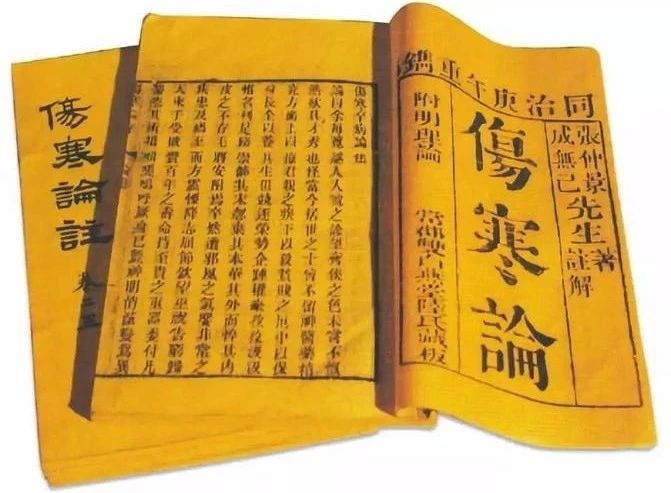 同治庚午重鐫
張仲景先生著
成無己先生註解
傷寒論
附明理論
常郡雙白燕堂陸氏藏板
傷寒卒病論集
論曰余每覽越人入虢之診望齊侯之色未嘗不慨
然歎其才秀也怪當今居世之士曾不留神醫藥精
究方術上以療君親之疾下以救貧賤之厄中以保
身長全以養其生但競逐榮勢企踵權豪孜孜汲汲
惟名利是務崇飾其末忽棄其本華其外而悴其內
皮之不存毛將安附焉卒然遭邪風之氣嬰非常之
疾患及禍至而方震慄降志屈節欽望巫祝告窮歸
天束手受敗賫百年之壽命持至貴之重器委付凡
醫恣其所措咄嗟嗚呼厥身已斃神明消滅變為異
傷寒論註
卷二